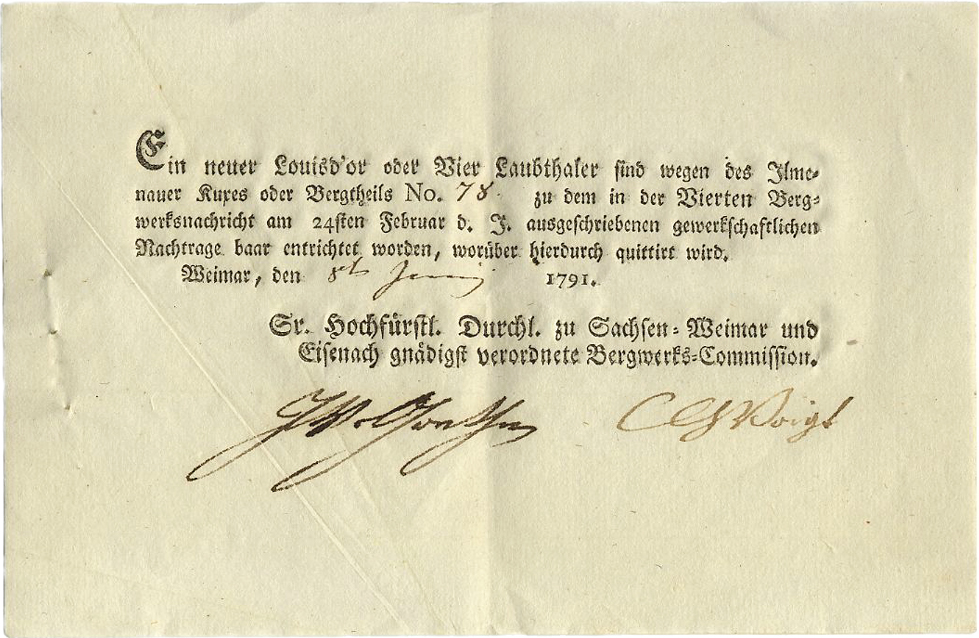 Ein neuer Louisd'or oder Vier Laubthaler sind wegen des Ilme-
nauer Kuxes oder Bergtheils No. 78 zu dem in der Vierten Berg-
werksnachricht am 24sten Februar d. J. ausgeschriebenen gewerkschaftlichen
Nachtrage baar entrichtet worden, worüber hierdurch quittirt wird.
Weimar, den 8t Juni 1791.
Sr. Hochfürstl. Durchl. zu Sachsen-Weimar und
Eisenach gnädigst verordnete Bergwerks-Commission.
JWvGoethe CGVoigt